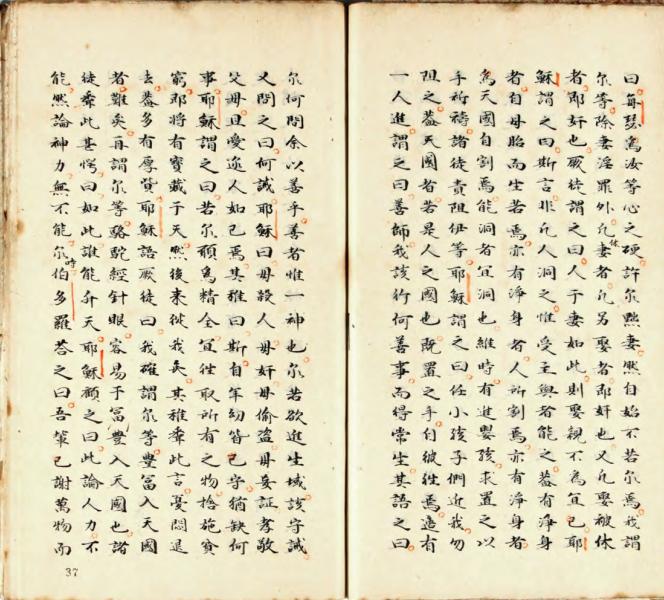 曰每瑟為汝等心之硬許尔黜妻然自始不若尔焉我謂
尔等除妻淫罪外凡休妻者凡另娶者即奸也又凡娶被休
者即奸也厥徒謂之曰人于妻如此則娶親不為宜已耶
穌謂之曰斯言非凡人洞之惟受主與者能之蓋有淨身
者自母胎而生若焉亦有淨身者人所割焉亦有淨身者
為天國自割焉能洞者宜洞也維時有進嬰孩求置之以
手祈禱諸徒責阻伊等耶穌謂之曰任小孩子們近我勿
阻之蓋天國者若是人之國也既置之手自彼徃焉適有
一人進謂之曰善師我該行何善事而得常生其語之曰
尔何問余以善乎善者惟一神也尔若欲進生域該守誡
又問之曰何誡耶穌曰毋殺人毋奸毋偷盜毋妄証孝敬
父毋且愛邇人如己焉其稚曰斯自年幼皆已守猶缺何
事耶穌謂之曰若尔願為精全宜徃取所有之物捨施窮
窮即將有寶藏于天然後来從我矣其稚聆此言憂悶退
去蓋多有厚貲耶穌語厥徒曰我確謂尔等豐富入天國
者難矣再謂尔等駱駝經針眼容易于冨豐入天國也諸
徒聆此甚愕曰如此誰能升天耶穌顧之曰此論人力不
能然論神力無不能尔時伯多羅荅之曰吾輩已謝萬物而
37